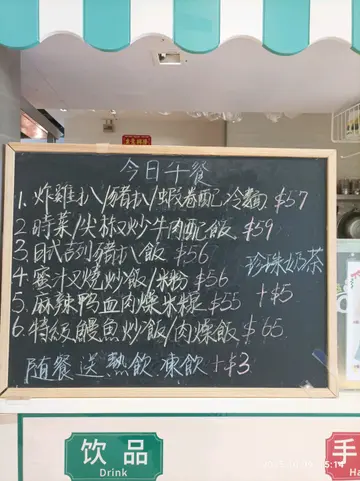 今日午餐
1. 炸雞扒/豬扒/蝦卷配冷麵 $57
2 時菜/尖椒炒牛肉配飯 $59
3. 日式吉列豬扒飯 $56
4. 蜜汁叉燒炒飯/米粉 $56
5. 麻辣鴨血肉燥米線 $55
6. 特級鰻魚炒飯/肉燥飯 $65
珍珠奶茶
+$5
随餐送熱飲 凍飲+$3
饮品
Drink
手
Ha
5:14